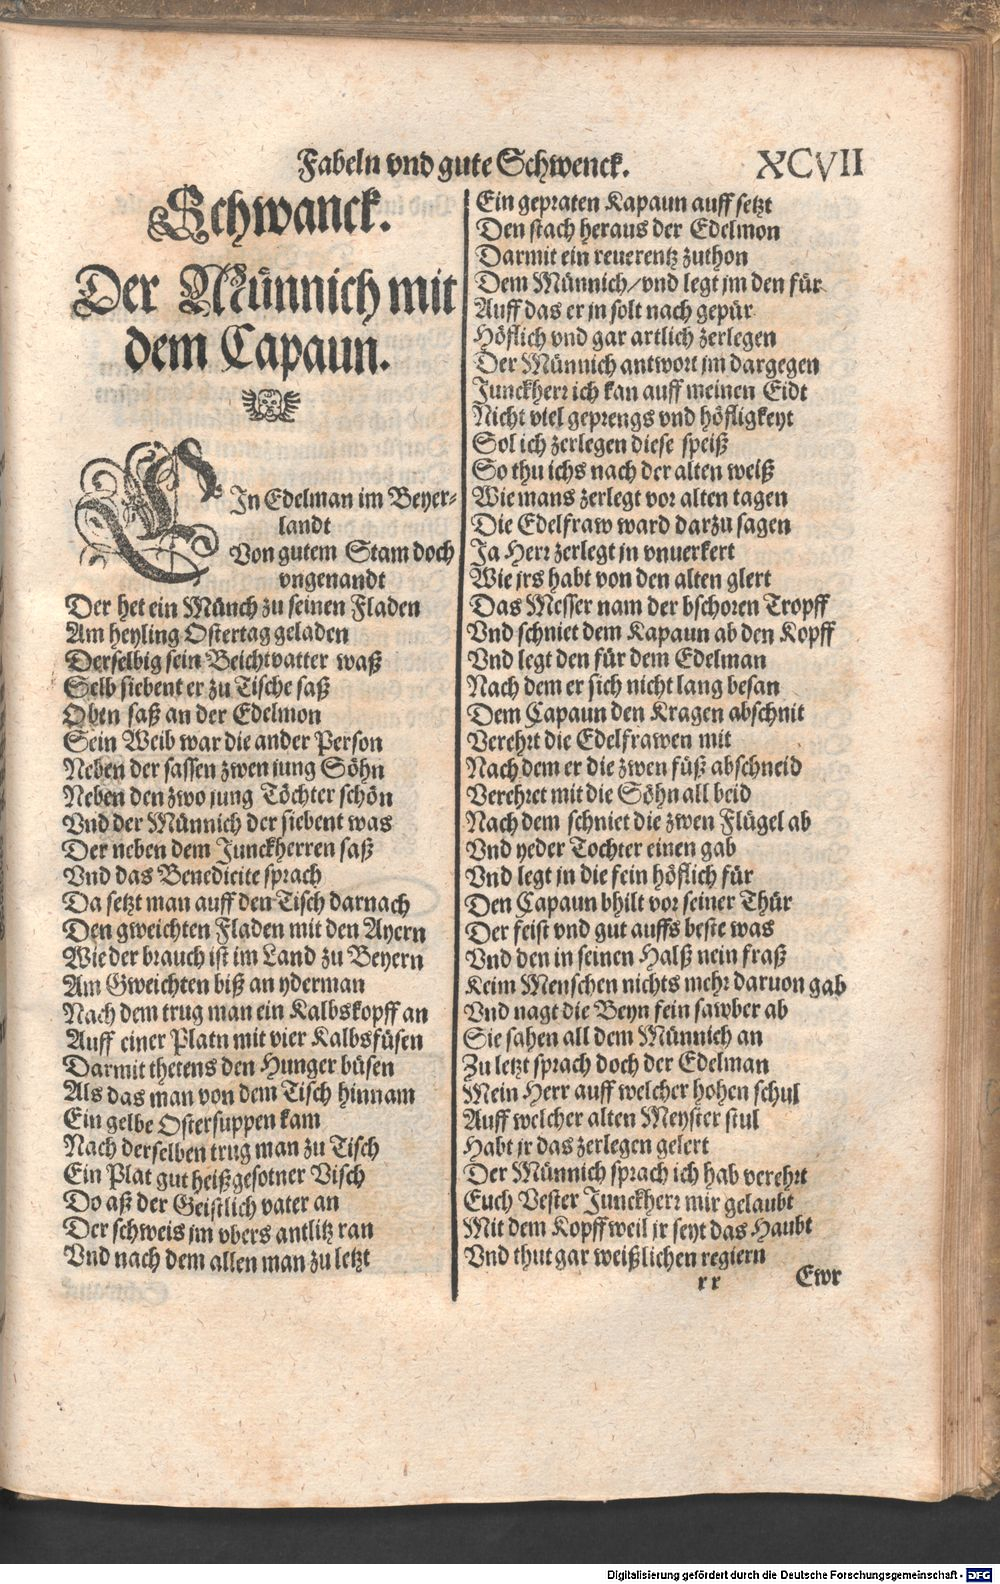 Fabeln vnd gute Schwenck. XCVII
Schwanck.
Der Münnich mit
dem Capaun.
EIn Edelman im Beyer-
landt
Von gutem Stam doch
vngenandt
Der het ein Münch zu seinen Fladen
Am heyling Ostertag geladen
Derselbig sein Beichtvatter waß
Selb siebent er zu Tische saß
Oben saß an der Edelmon
Sein Weib war die ander Person
Neben der sassen zwen jung Söhn
Neben den zwo jung Töchter schön
Vnd der Münnich der siebent was
Der neben dem Junckherren saß
Vnd das Benedicite sprach
Da setzt man auff den Tisch darnach
Den gweichten Fladen mit den Ayern
Wie der brauch ist im Land zu Beyern
Am Gweichten biß an yderman
Nach dem trug man ein Kalbskopff an
Auff einer Platn mit vier Kalbsfüsen
Darmit thetens den Hunger büsen
Als das man von dem Tisch hinnam
Ein gelbe Ostersuppen kam
Nach derselben trug man zu Tisch
Ein Plat gut heiß gesotner Visch
Do aß der Geistlich vater an
Der schweis jm vbers antlitz ran
Vnd nach dem allen man zu letzt
Ein gepraten Kapaun auff setzt
Den stach heraus der Edelmon
Darmit ein reuerentz zuthon
Dem Münnich/vnd legt jm den für
Auff das er jn solt nach gepür
Höflich vnd gar artlich zerlegen
Der Münnich antwort jm dargegen
Junckherr ich kan auff meinen Eidt
Nicht viel geprengs vnd höfligkeyt
Sol ich zerlegen diese speiß
So thu ichs nach der alten weiß
Wie mans zerlegt vor alten tagen
Die Edelfraw ward darzu sagen
Ja Herr zerlegt jn vnuerkert
Wie jrs habt von den alten glert
Das Messer nam der bschoren Tropff
Vnd schniet dem Kapaun ab den Kopff
Vnd legt den für dem Edelman
Nach dem er sich nicht lang besan
Dem Capaun den Kragen abschnit
Verehrt die Edelfrawen mit
Nach dem er die zwen füß abschneid
Verehret mit die Söhn all beid
Nach dem schniet die zwen Flügel ab
Vnd yeder Tochter einen gab
Vnd legt jn die fein höflich für
Den Capaun bhilt vor seiner Thür
Der feist vnd gut auffs beste was
Vnd den in seinen Halß nein fraß
Keim Menschen nichts mehr daruon gab
Vnd nagt die Beyn fein sawber ab
Sie sahen all dem Münnich an
Zu letzt sprach doch der Edelman
Mein Herr auff welcher hohen schul
Auff welcher alten Meyster stul
Habt jr das zerlegen gelert
Der Münnich sprach ich hab verehrt
Euch Vester Junckherr mir gelaubt
Mit dem Kopff weil jr seyt das Haubt
Vnd thut gar weißlichen regiern
rr Ewr
Digitalisierung gefördert durch die Deutsche Forschungsgemeinschaft - DFG